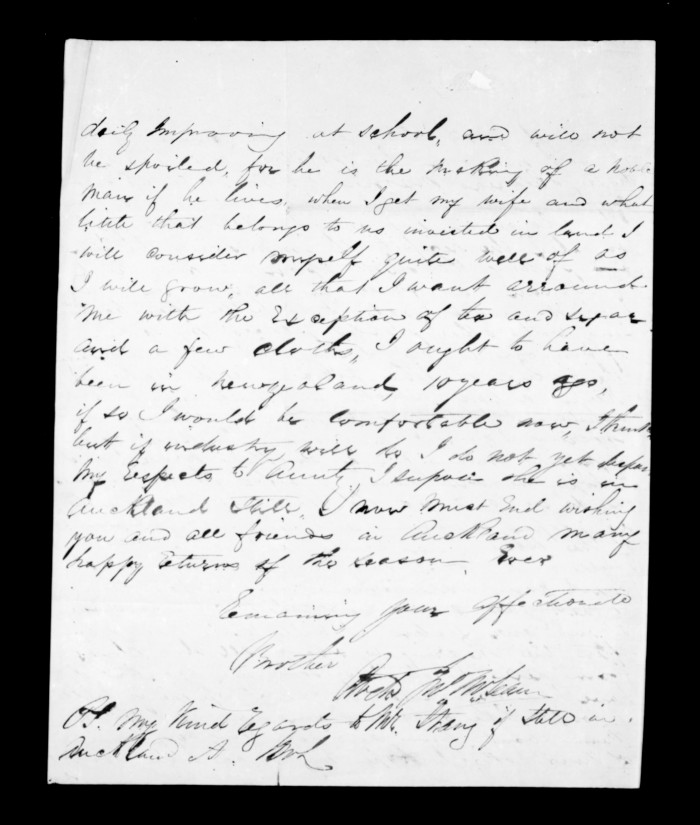 daily improving at school, and will not
be spoiled, for he is the making of a noble
man if he lives. when I get my wife and what
little that belongs to us invested in land I
will consider myself quite well of as
I will grow, all that I want arround
me with the Exception of tea and sugar
and a few cloths, I ought to have
been in Newzealand, 10 years ago,
if so I would be comfortable now, I think
but if industry will do I do not yet despair
My Respects to Aunty, I supose she is in
Auckland still. I now must End wishing
you and all friends in Auckland many
happy returns of the season. Ever
Remaining your affectionate
Brother
Archd Jno McLean
PS. My Kind Regards to Mr. Strang if still in
Auckland A.